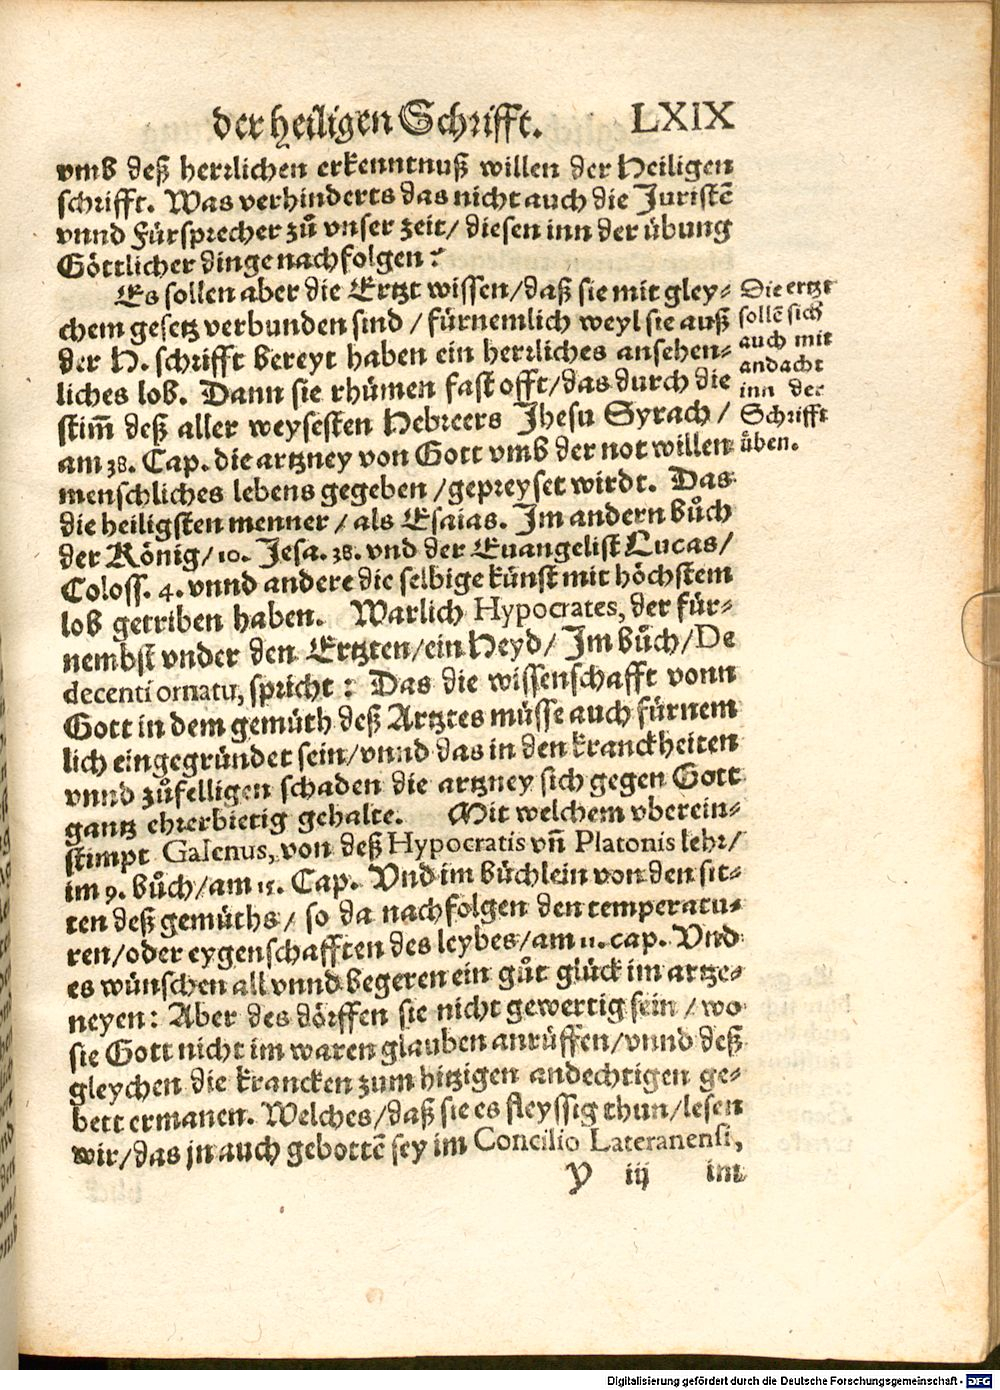 der heiligen Schrifft. LXIX
vmb deß herrlichen erkenntnuß willen der Heiligen
schrifft. Was verhinderts das nicht auch die Juristē
vnnd Fürsprecher zů vnser zeit/ diesen inn der übung
Göttlicher dinge nachfolgen?
Es sollen aber die Ertzt wissen/daß sie mit gley⸗
chem gesetz verbunden sind / fürnemlich weyl sie auß
der H. schrifft bereyt haben ein herrliches ansehen⸗
liches lob. Dann sie rhümen fast offt/das durch die
stim̃ deß aller weysesten Hebreers Jhesu Syrach /
am 38. Cap. die artzney von Gott vmb der not willen
menschliches lebens gegeben /gepreyset wirdt. Das
die heiligsten menner / als Esaias. Im andern bůch
der König/ 10. Jesa. 38. vnd der Euangelist Lucas/
Coloss. 4. vnnd andere die selbige künst mit höchstem
lob getriben haben. Warlich Hypocrates, der für⸗
nembst vnder den Ertzten/ein Heyd/ Im bůch/De
decenti ornatu, spricht: Das die wissenschafft vonn
Gott in dem gemüth deß Artztes müsse auch fürnem
lich eingegründet sein/vnnd das in den kranckheiten
vnnd zůfelligen schaden die artzney sich gegen Gott
gantz ehrerbietig gehalte. Mit welchem vberein⸗
stimpt Galenus, von deß Hypocratis vñ Platonis lehr/
im 9. bůch/am 15. Cap. Vnd im büchlein von den sit⸗
ten deß gemüths/ so da nachfolgen den temperatu⸗
ren/oder eygenschafften des leybes/am 11. cap. Vnd
es wünschen all vnnd begeren ein gůt glück im artze⸗
neyen: Aber des dörffen sie nicht gewertig sein / wo
sie Gott nicht im waren glauben anrüffen/vnnd deß
gleychen die krancken zum hitzigen andechtigen ge⸗
bett ermanen. Welches/daß sie es fleyssig thun/lesen
wir/das jn auch gebottē sey im Concilio Lateranensi,
Y iij im
Die ertzt
sollē sich
auch mit
andacht
inn der
Schrifft
üben.
Digitalisierung gefördert durch die Deutsche Forschungsgemeinschaft - DFG